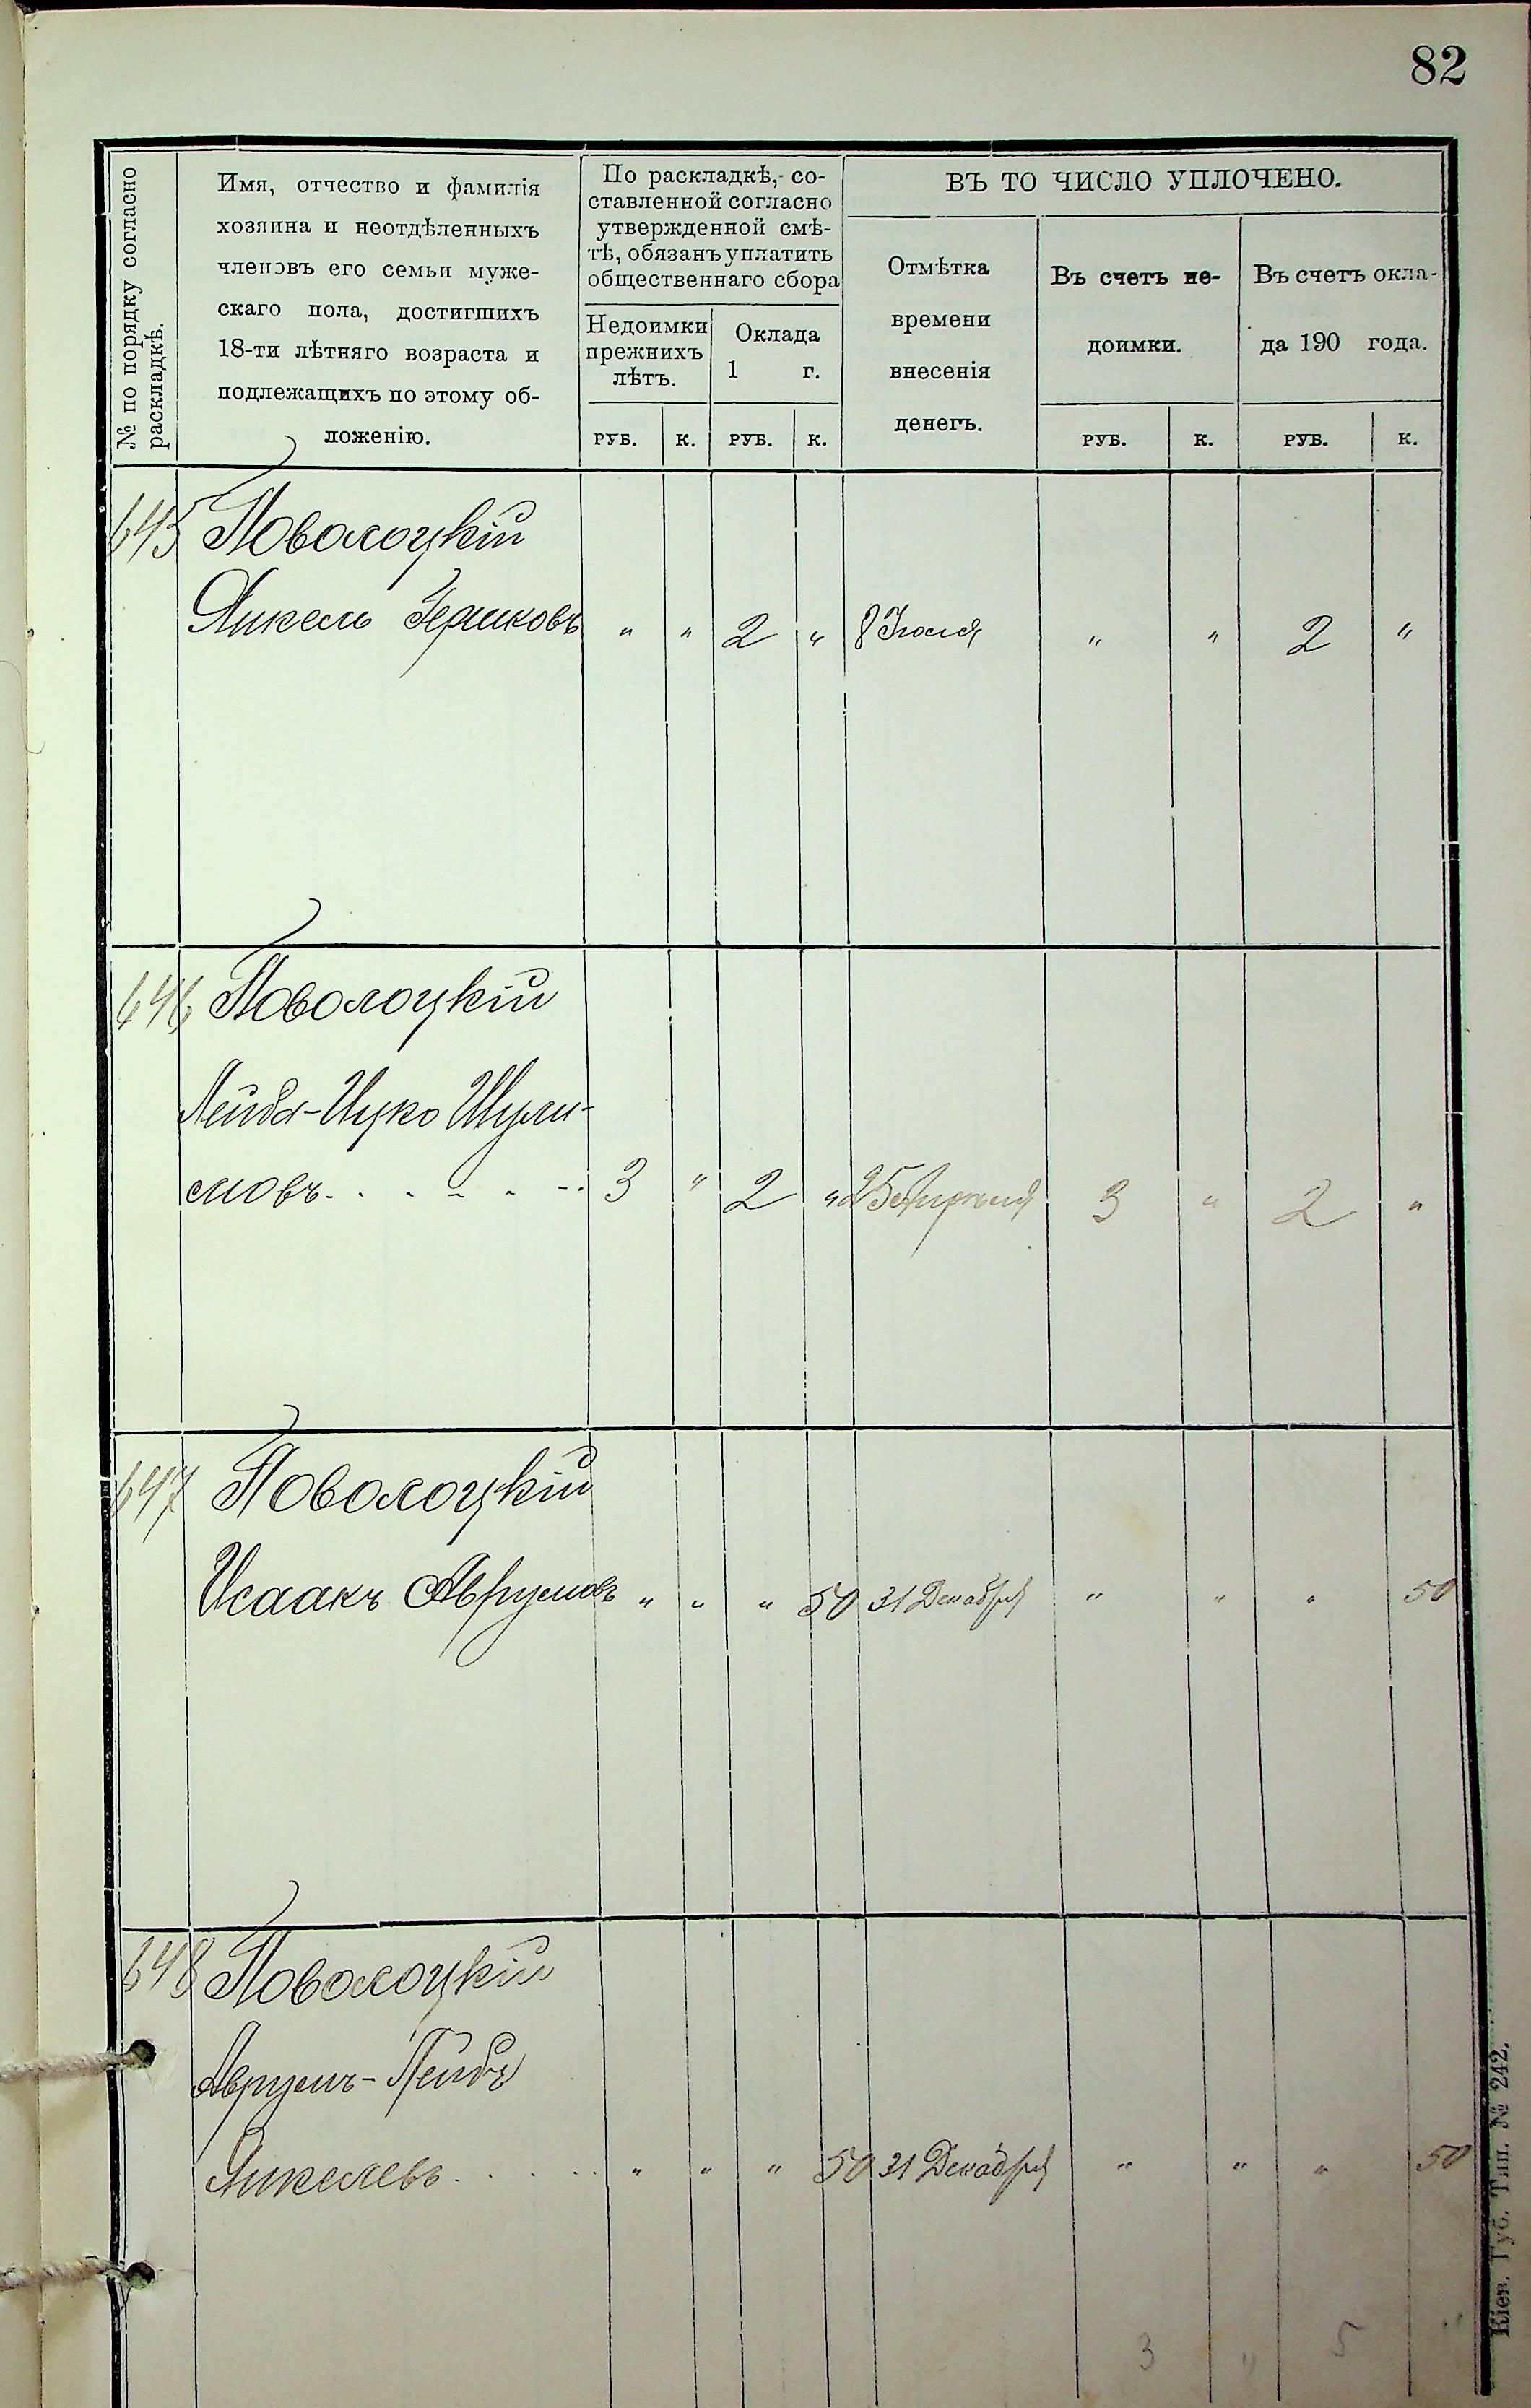 82
№ по порядку согласно
раскладкѣ.
Имя, отчество и фамилія
хозяина и неотдѣленныхъ
членовъ его семьи муже-
скаго пола, достигшихъ
18-ти лѣтняго возраста и
подлежащихъ по этому об-
ложенію.
По раскладкѣ, со-
ставленной согласно
утвержденной смѣ-
тѣ, обязанъ уплатить
общественнаго сбора
Недоимки
прежнихъ
лѣтъ.
Оклада
1 г.
ВЪ ТО ЧИСЛО УПЛОЧЕНО.
Отмѣтка
времени
внесенія
денегъ.
Въ счетъ не-
доимки.
Въ счетъ окла-
да 190 года.
РУБ. К. РУБ. К. РУБ. К. РУБ. К.
645 Поволоцкій
Янкель Гершковъ " " 2 " 8 Іюля " " 2 "
646 Поволоцкій
Лейба-Ицко Шули-
мовъ 3 " 2 " 25 Апрѣля 3 " 2 "
647 Поволоцкій
Исаакъ Аврумовъ " " " 50 31 Декабря " " " 50
648 Поволоцкій
Аврумъ-Лейбъ
Янкелевъ " " " 50 31 Декабря " " " 50
3 " 5 "
Кіев. Губ. Тип. № 242.